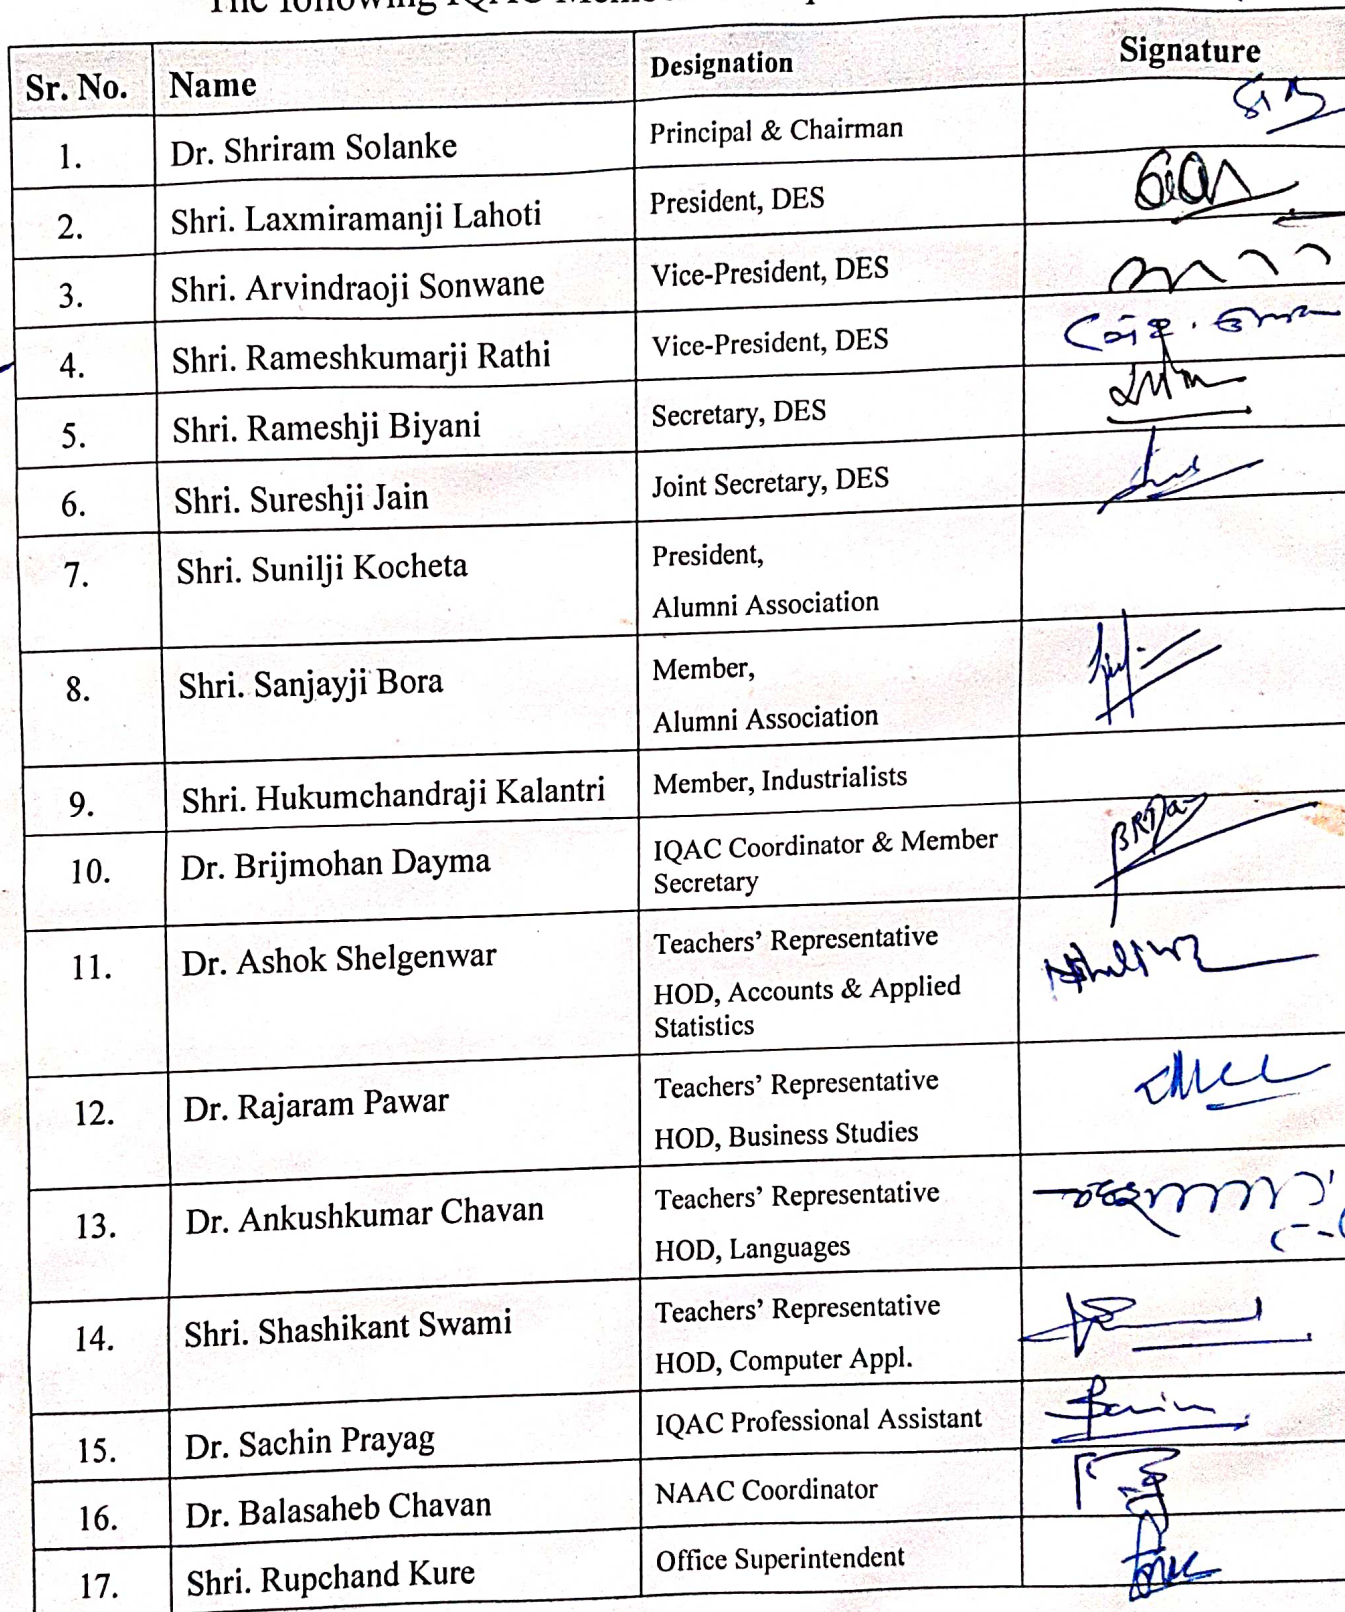 The following IQAC
Sr. No. Name Designation Signature
1. Dr. Shriram Solanke Principal & Chairman
2. Shri. Laxmiramanji Lahoti President, DES
3. Shri. Arvindraoji Sonwane Vice-President, DES
4. Shri. Rameshkumarji Rathi Vice-President, DES
5. Shri. Rameshji Biyani Secretary, DES
6. Shri. Sureshji Jain Joint Secretary, DES
7. Shri. Sunilji Kocheta President,
Alumni Association
8. Shri. Sanjayji Bora Member,
Alumni Association
9. Shri. Hukumchandraji Kalantri Member, Industrialists
10. Dr. Brijmohan Dayma IQAC Coordinator & Member
Secretary
11. Dr. Ashok Shelgenwar Teachers’ Representative
HOD, Accounts & Applied
Statistics
12. Dr. Rajaram Pawar Teachers’ Representative
HOD, Business Studies
13. Dr. Ankushkumar Chavan Teachers’ Representative
HOD, Languages
14. Shri. Shashikant Swami Teachers’ Representative
HOD, Computer Appl.
15. Dr. Sachin Prayag IQAC Professional Assistant
16. Dr. Balasaheb Chavan NAAC Coordinator
17. Shri. Rupchand Kure Office Superintendent